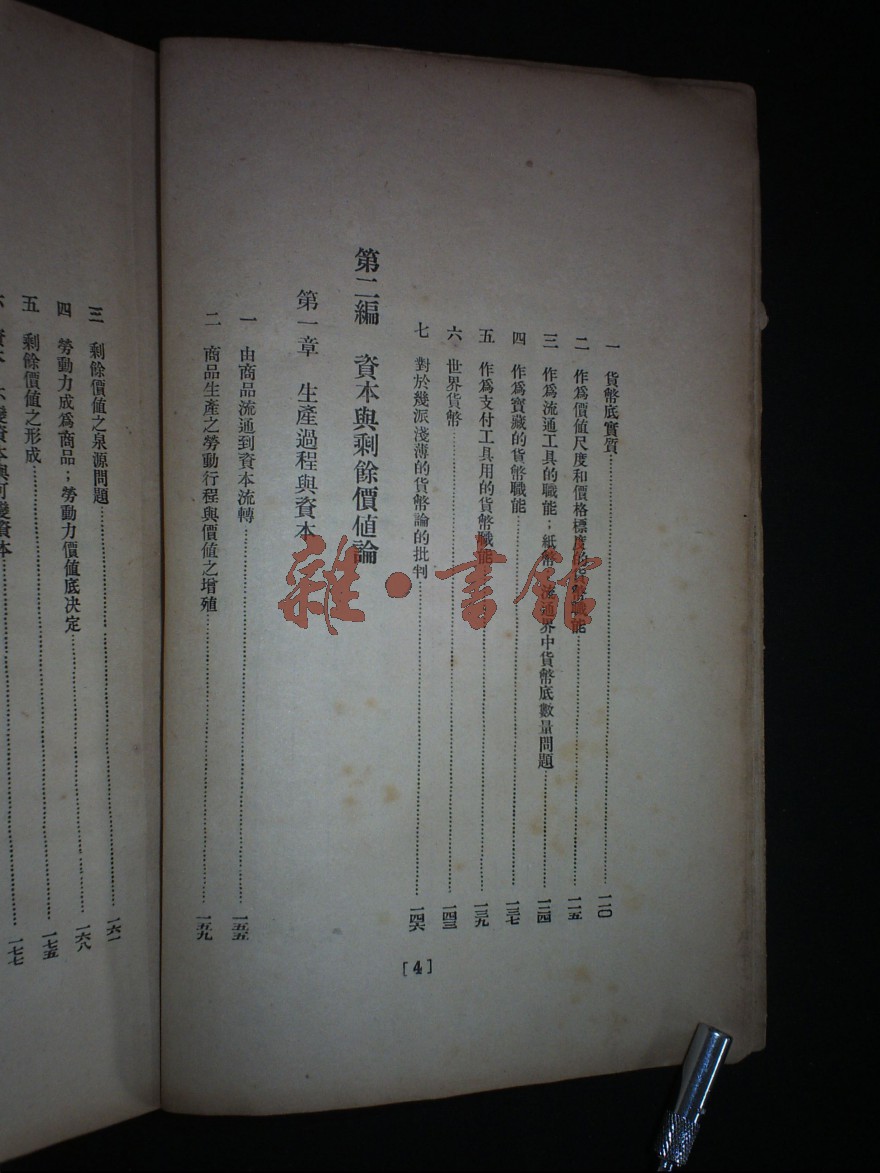 一 貨幣底實質……一一〇
二 作爲價值尺度和價格標度的貨幣職能……一一五
三 作爲流通工具的職能；紙幣；流通界中貨幣底數量問題……一二四
四 作爲寶藏的貨幣職能……一三七
五 作爲支付工具用的貨幣職能……一三九
六 世界貨幣……一四三
七 對於幾派淺薄的貨幣論的批判……一四六
第二編 資本與剩餘價値論
第一章 生產過程與資本
一 由商品流通到資本流轉……一五五
二 商品生產之勞動行程與價値之增殖……一五九
[4]
三 剩餘價値之泉源問題……一六一
四 勞動力成爲商品；勞動力價値底決定……一六八
五 剩餘價値之形成……一七五
六 資本 不變資本與可變資本……一七七
雜·書館